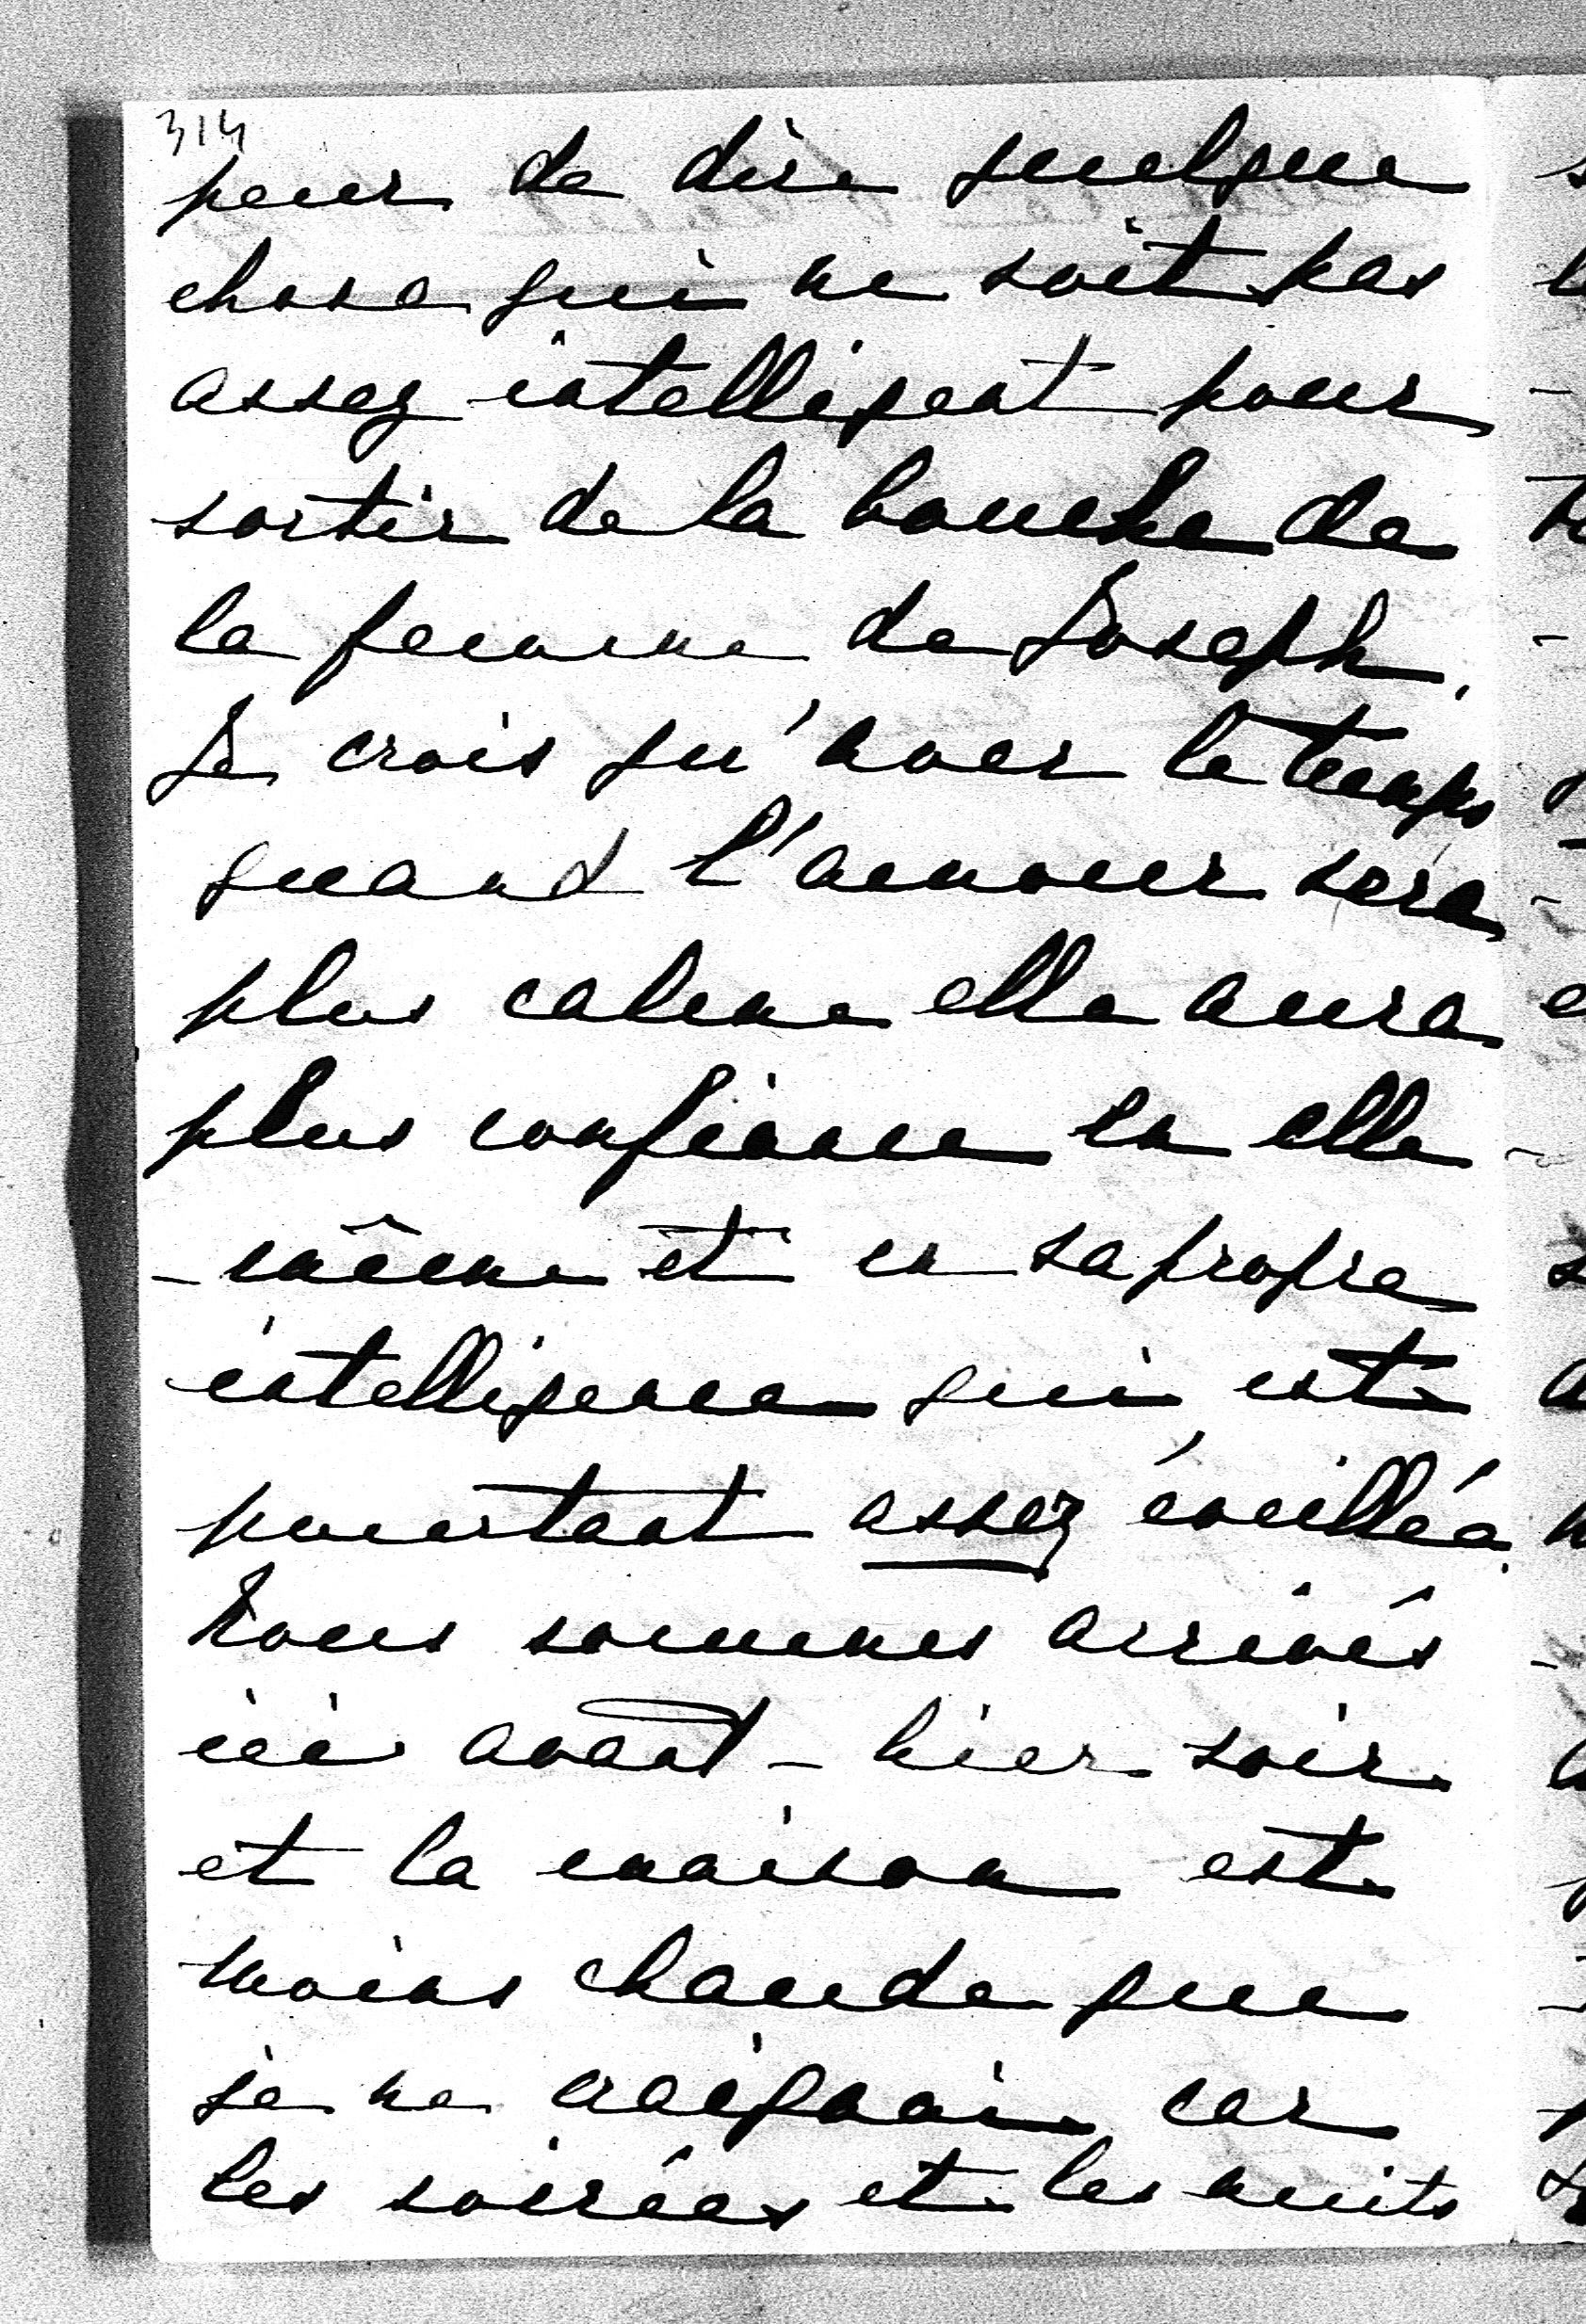 314
peur de dire quelque
chose qui ne soit pas
assez intelligent pour
sortir de la bouche de
la femme de Joseph.
Je crois qu'avec le temps
quand l'amour sera
plus calme elle aura
plus confiance en elle
-même et en sa propre
intelligence qui est
pourtant assez éveillée.
Nous sommes arrivés
ici avant-hier soir
et la maison est
moins chaude que
je ne craignais car
les soirées et les nuits